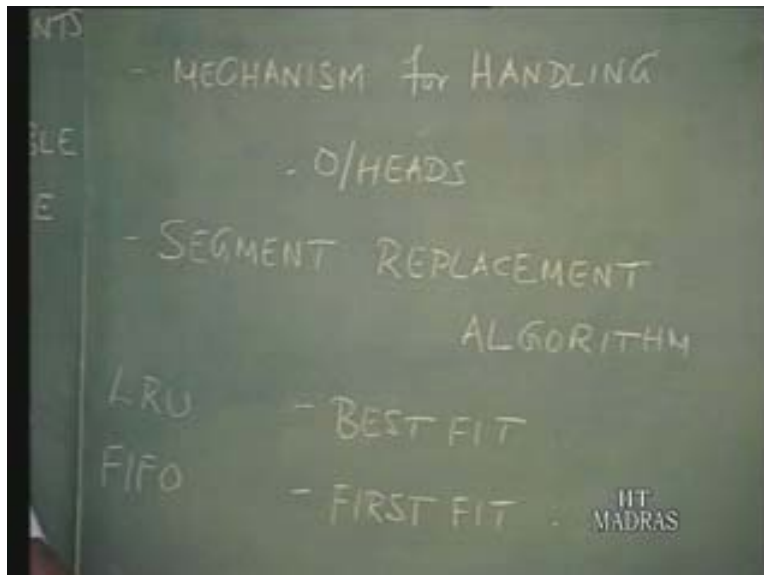 NTS
- MECHANISM for HANDLING
BLE
. O/HEADS
E
- SEGMENT REPLACEMENT
ALGORITHM
LRU - BEST FIT
FIFO - FIRST FIT .
IIT
MADRAS